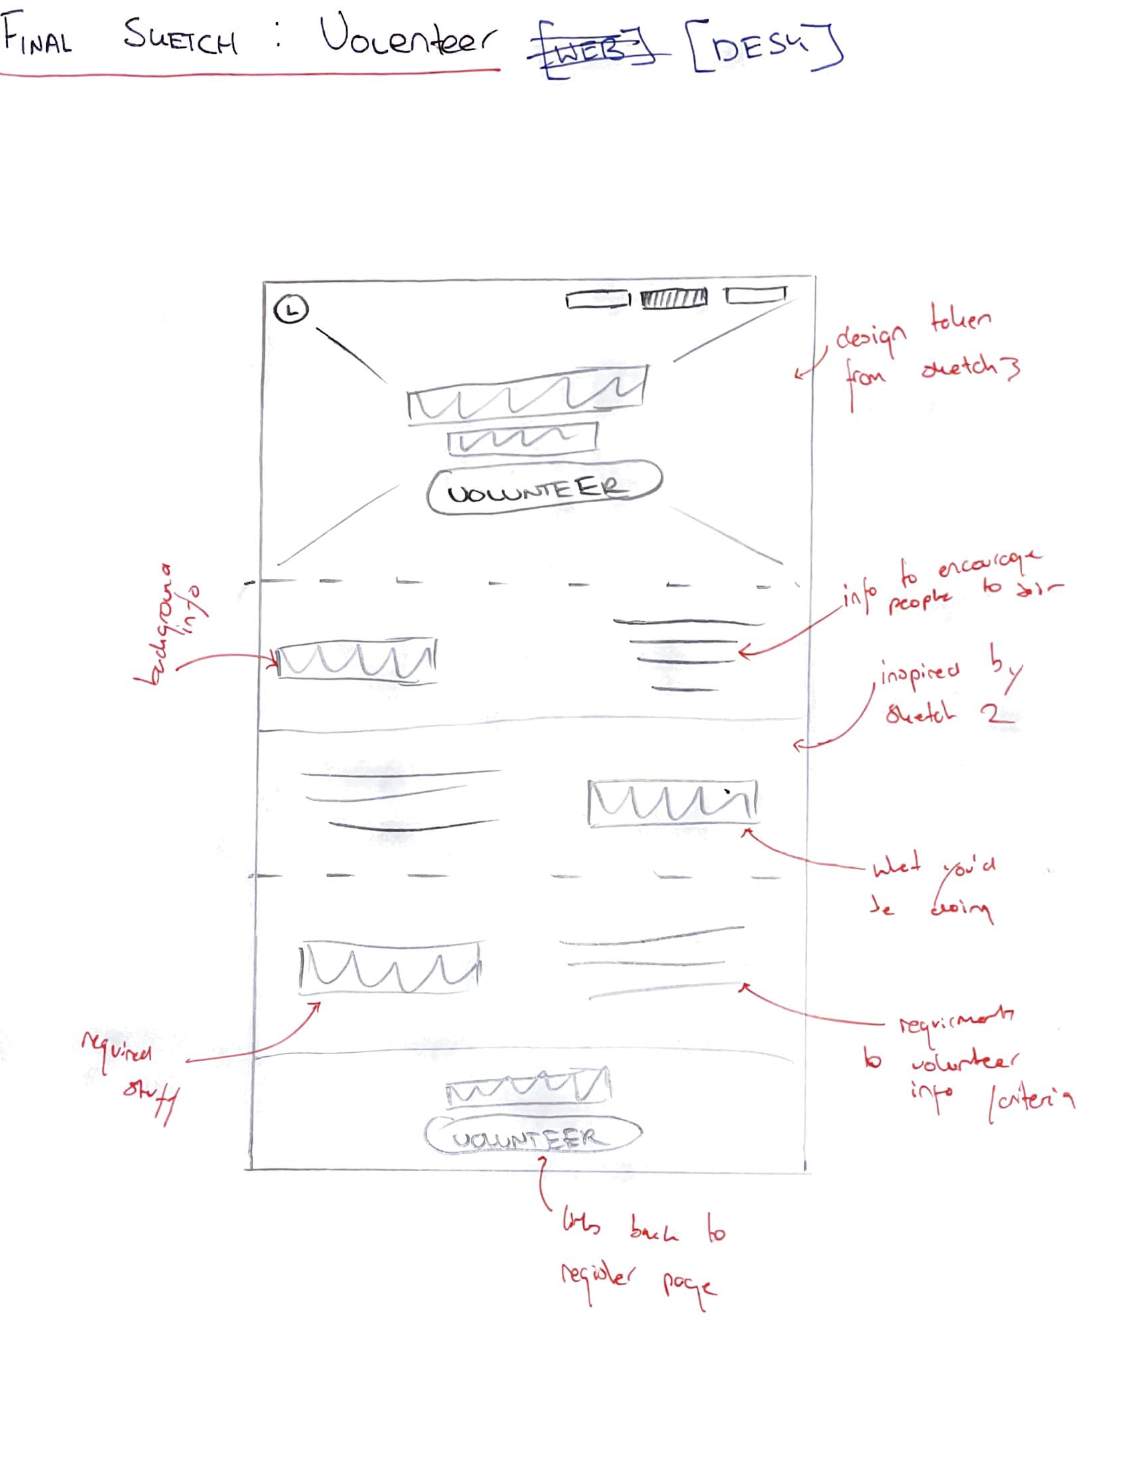 FINAL SKETCH : Volenteer [WEB] [DESK]
L
design token
from sketch 3
VOLUNTEER
background
info
info to encourage
people to join
inspired by
sketch 2
what you'd
be doing
required
stuff
requirments
to volunteer
info / criteria
VOLUNTEER
links back to
register page